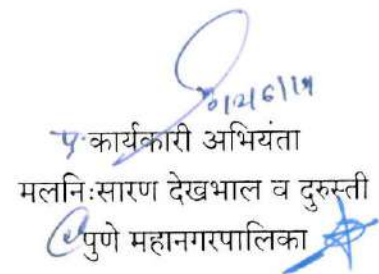 प्र.कार्यकारी अभियंता
मलनिःसारण देखभाल व दुरुस्ती
पुणे महानगरपालिका